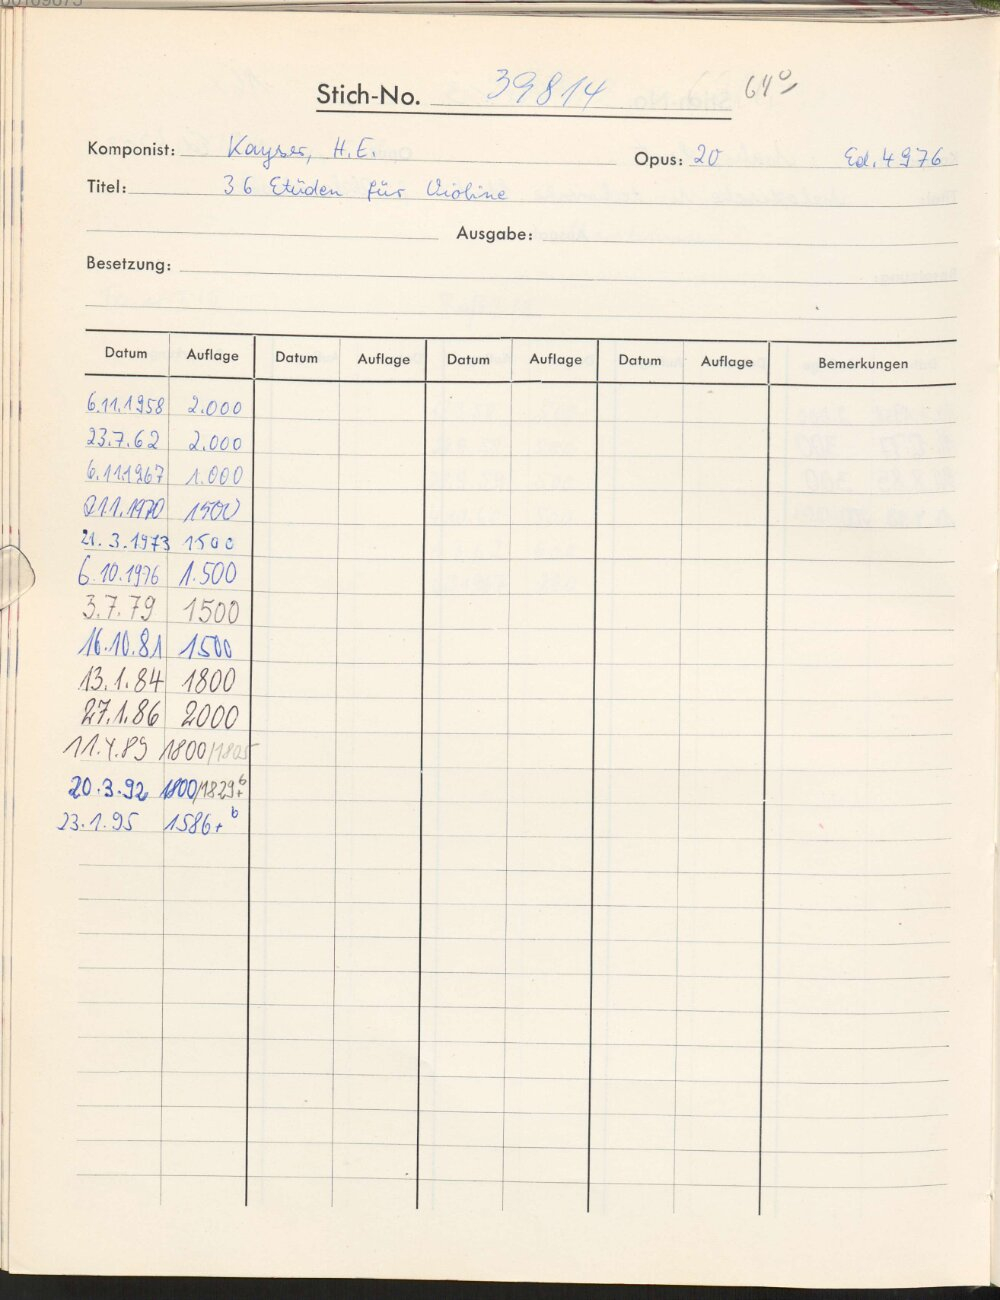 Stich-No. 39814 64°
Komponist: Kayser, H.E. Opus: 20 Ed. 4976
Titel: 36 Etüden für Violine
Ausgabe:
Besetzung:
Datum Auflage Datum Auflage Datum Auflage Datum Auflage Bemerkungen
6.11.1958 2.000
23.7.62 2.000
6.11.1967 1.000
1.1970 1500
21.3.1973 1500
6.10.1976 1.500
3.7.79 1500
16.10.81 1500
13.1.84 1800
27.1.86 2000
11.4.89 1800/1805
20.3.92 1800/1829+ b
23.1.95 1586+ b